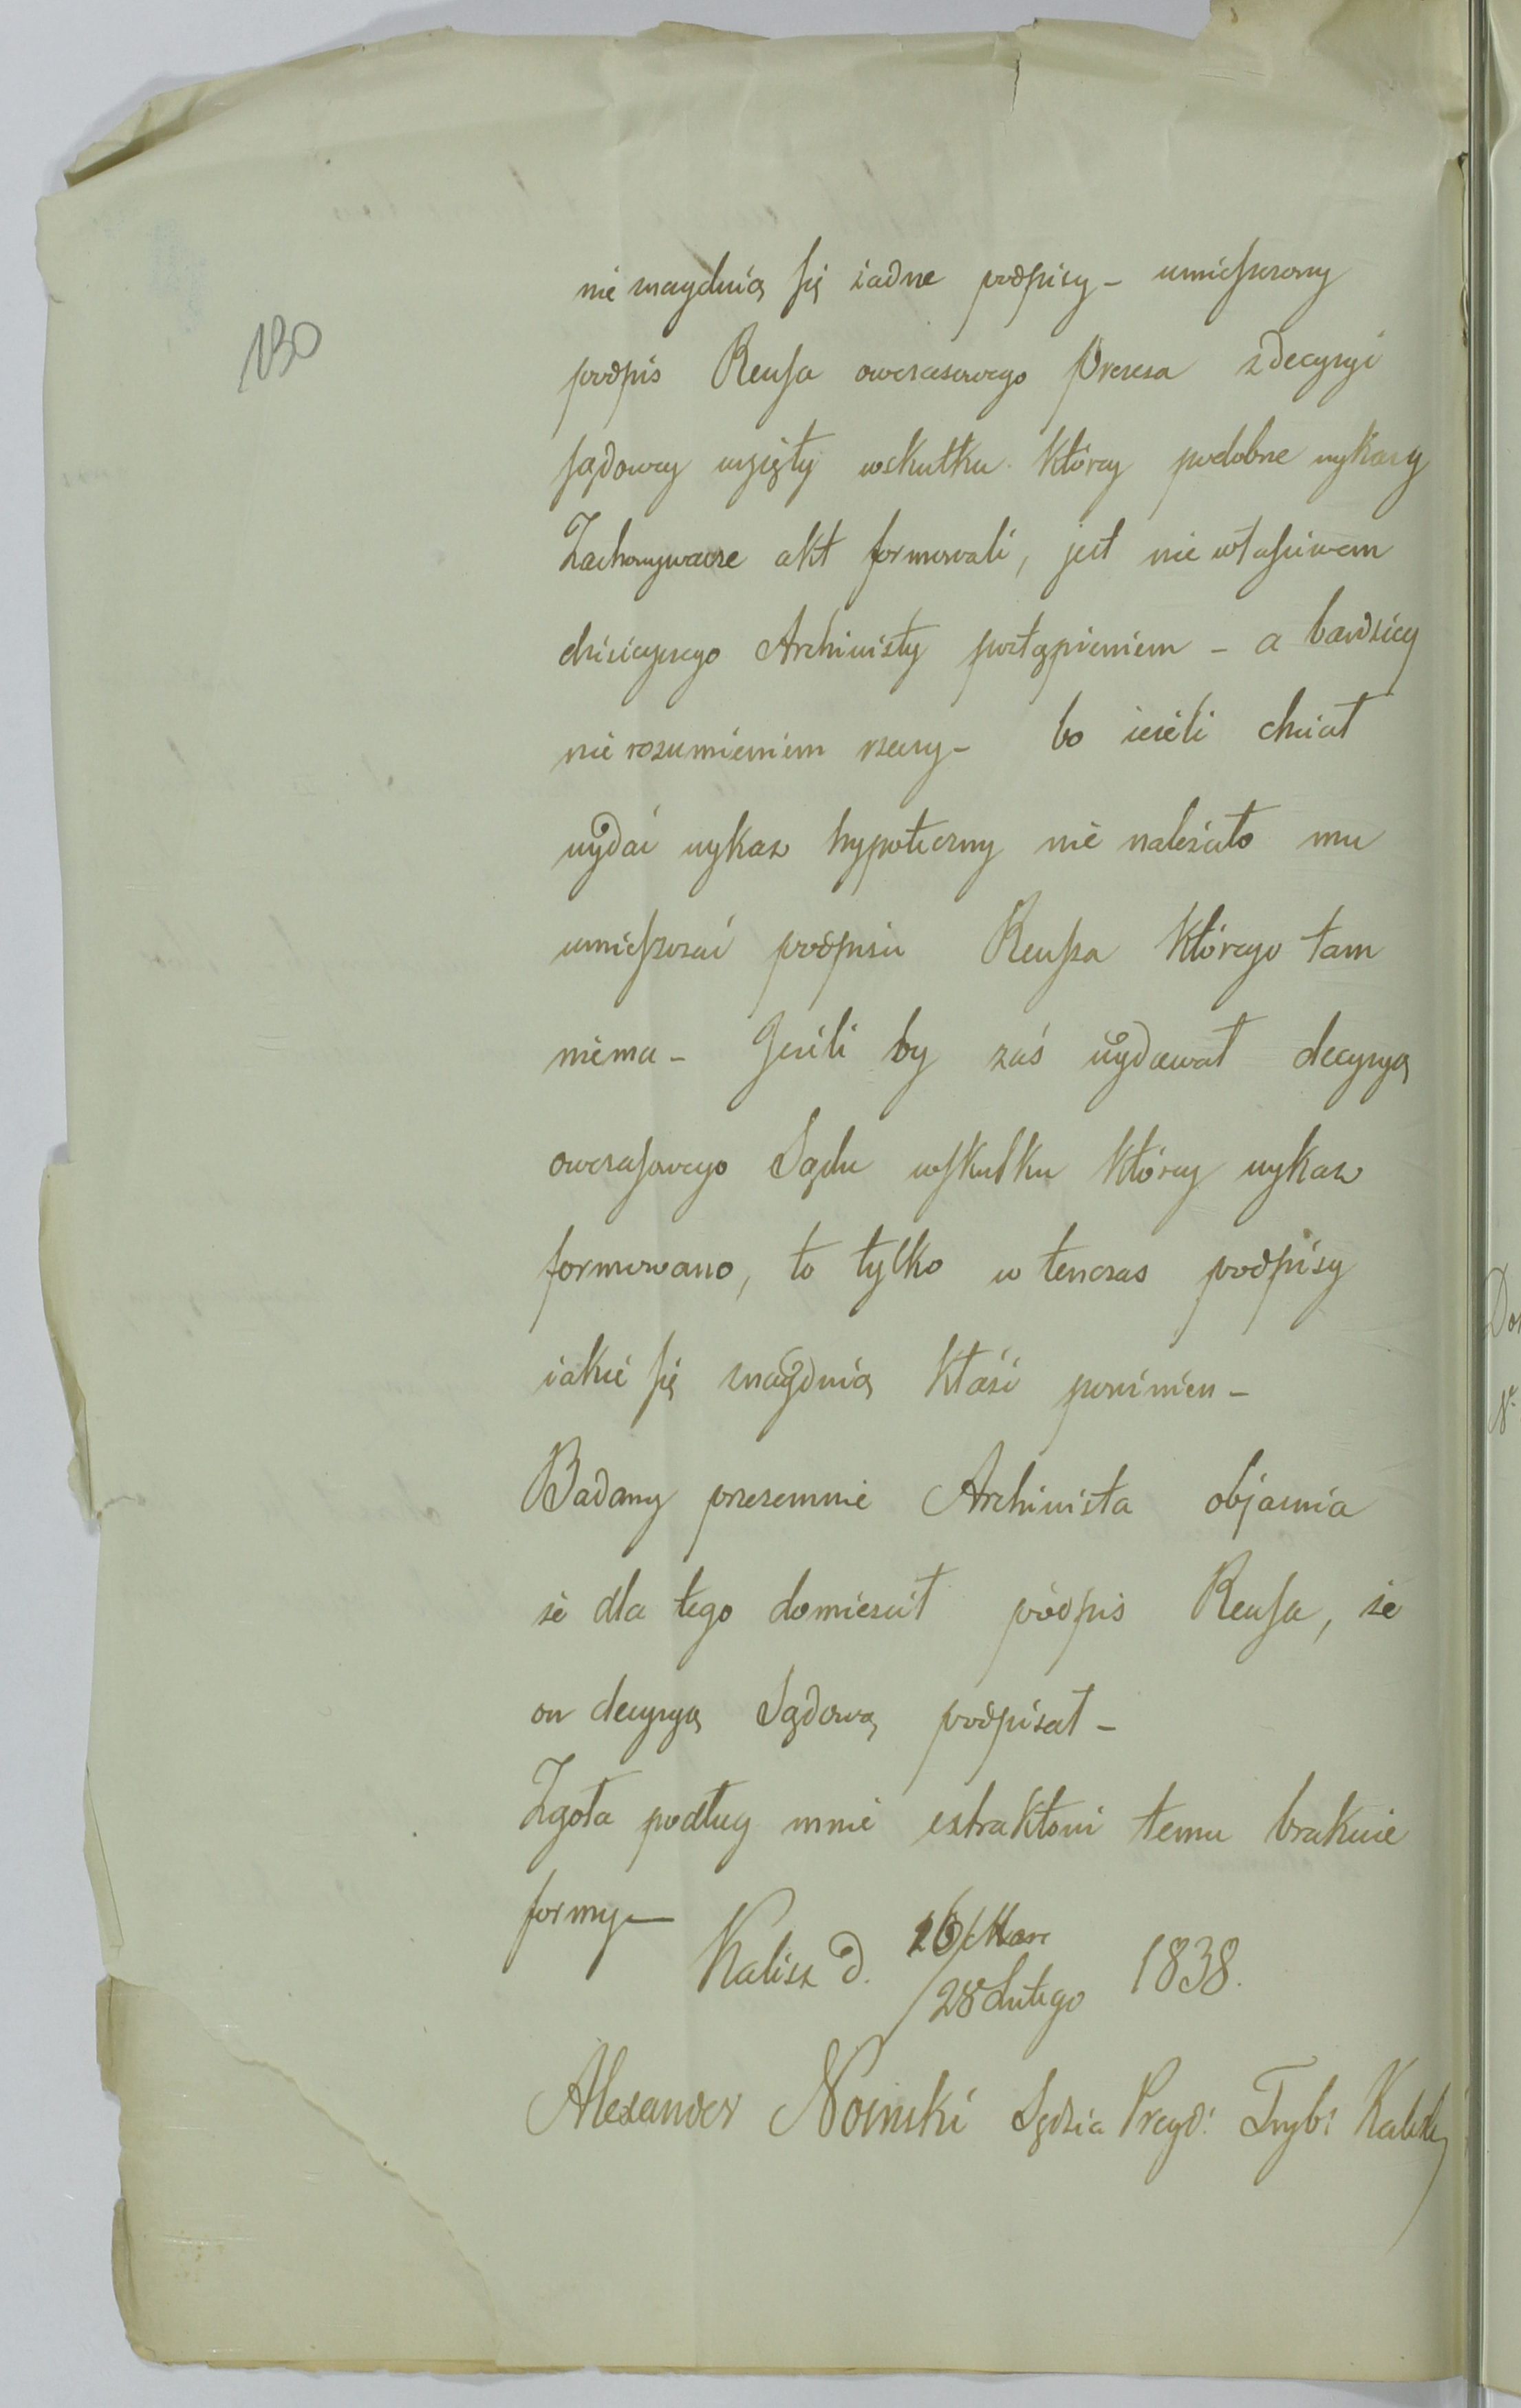 130
nie znayduią się żadne podpisy – umieszczony
podpis Reusa owczasowego Prezesa z decyzyi
sądowey wzięty wskutku którey podobne wykazy
Zachowywacze akt formowali, jest nie właściwem
dzisieyszego Archiwisty postąpieniem – a bardziey
nie rozumieniem rzeczy – bo ieżeli chciał
wydać wykaz hypoteczny nie należało mu
umieszczać podpisu Reusza którego tam
niema – Jeżeli by zaś wydawał decyzyą
owczasowego Sądu wskutku którey wykaz
formowano, to tylko w tenczas podpisy
iakie się znayduią kłaść powinien –
Badany przezemnie Archiwista objaśnia
że dla tego domieścił podpis Reusa, że
on decyzyą Sądową podpisał –
Zgoła podług mnie extraktowi temu brakuie
formy –
Kalisz d. 16/
/28 Lutego 1838.
Alexander Sędzia Prezyd: Tryb: